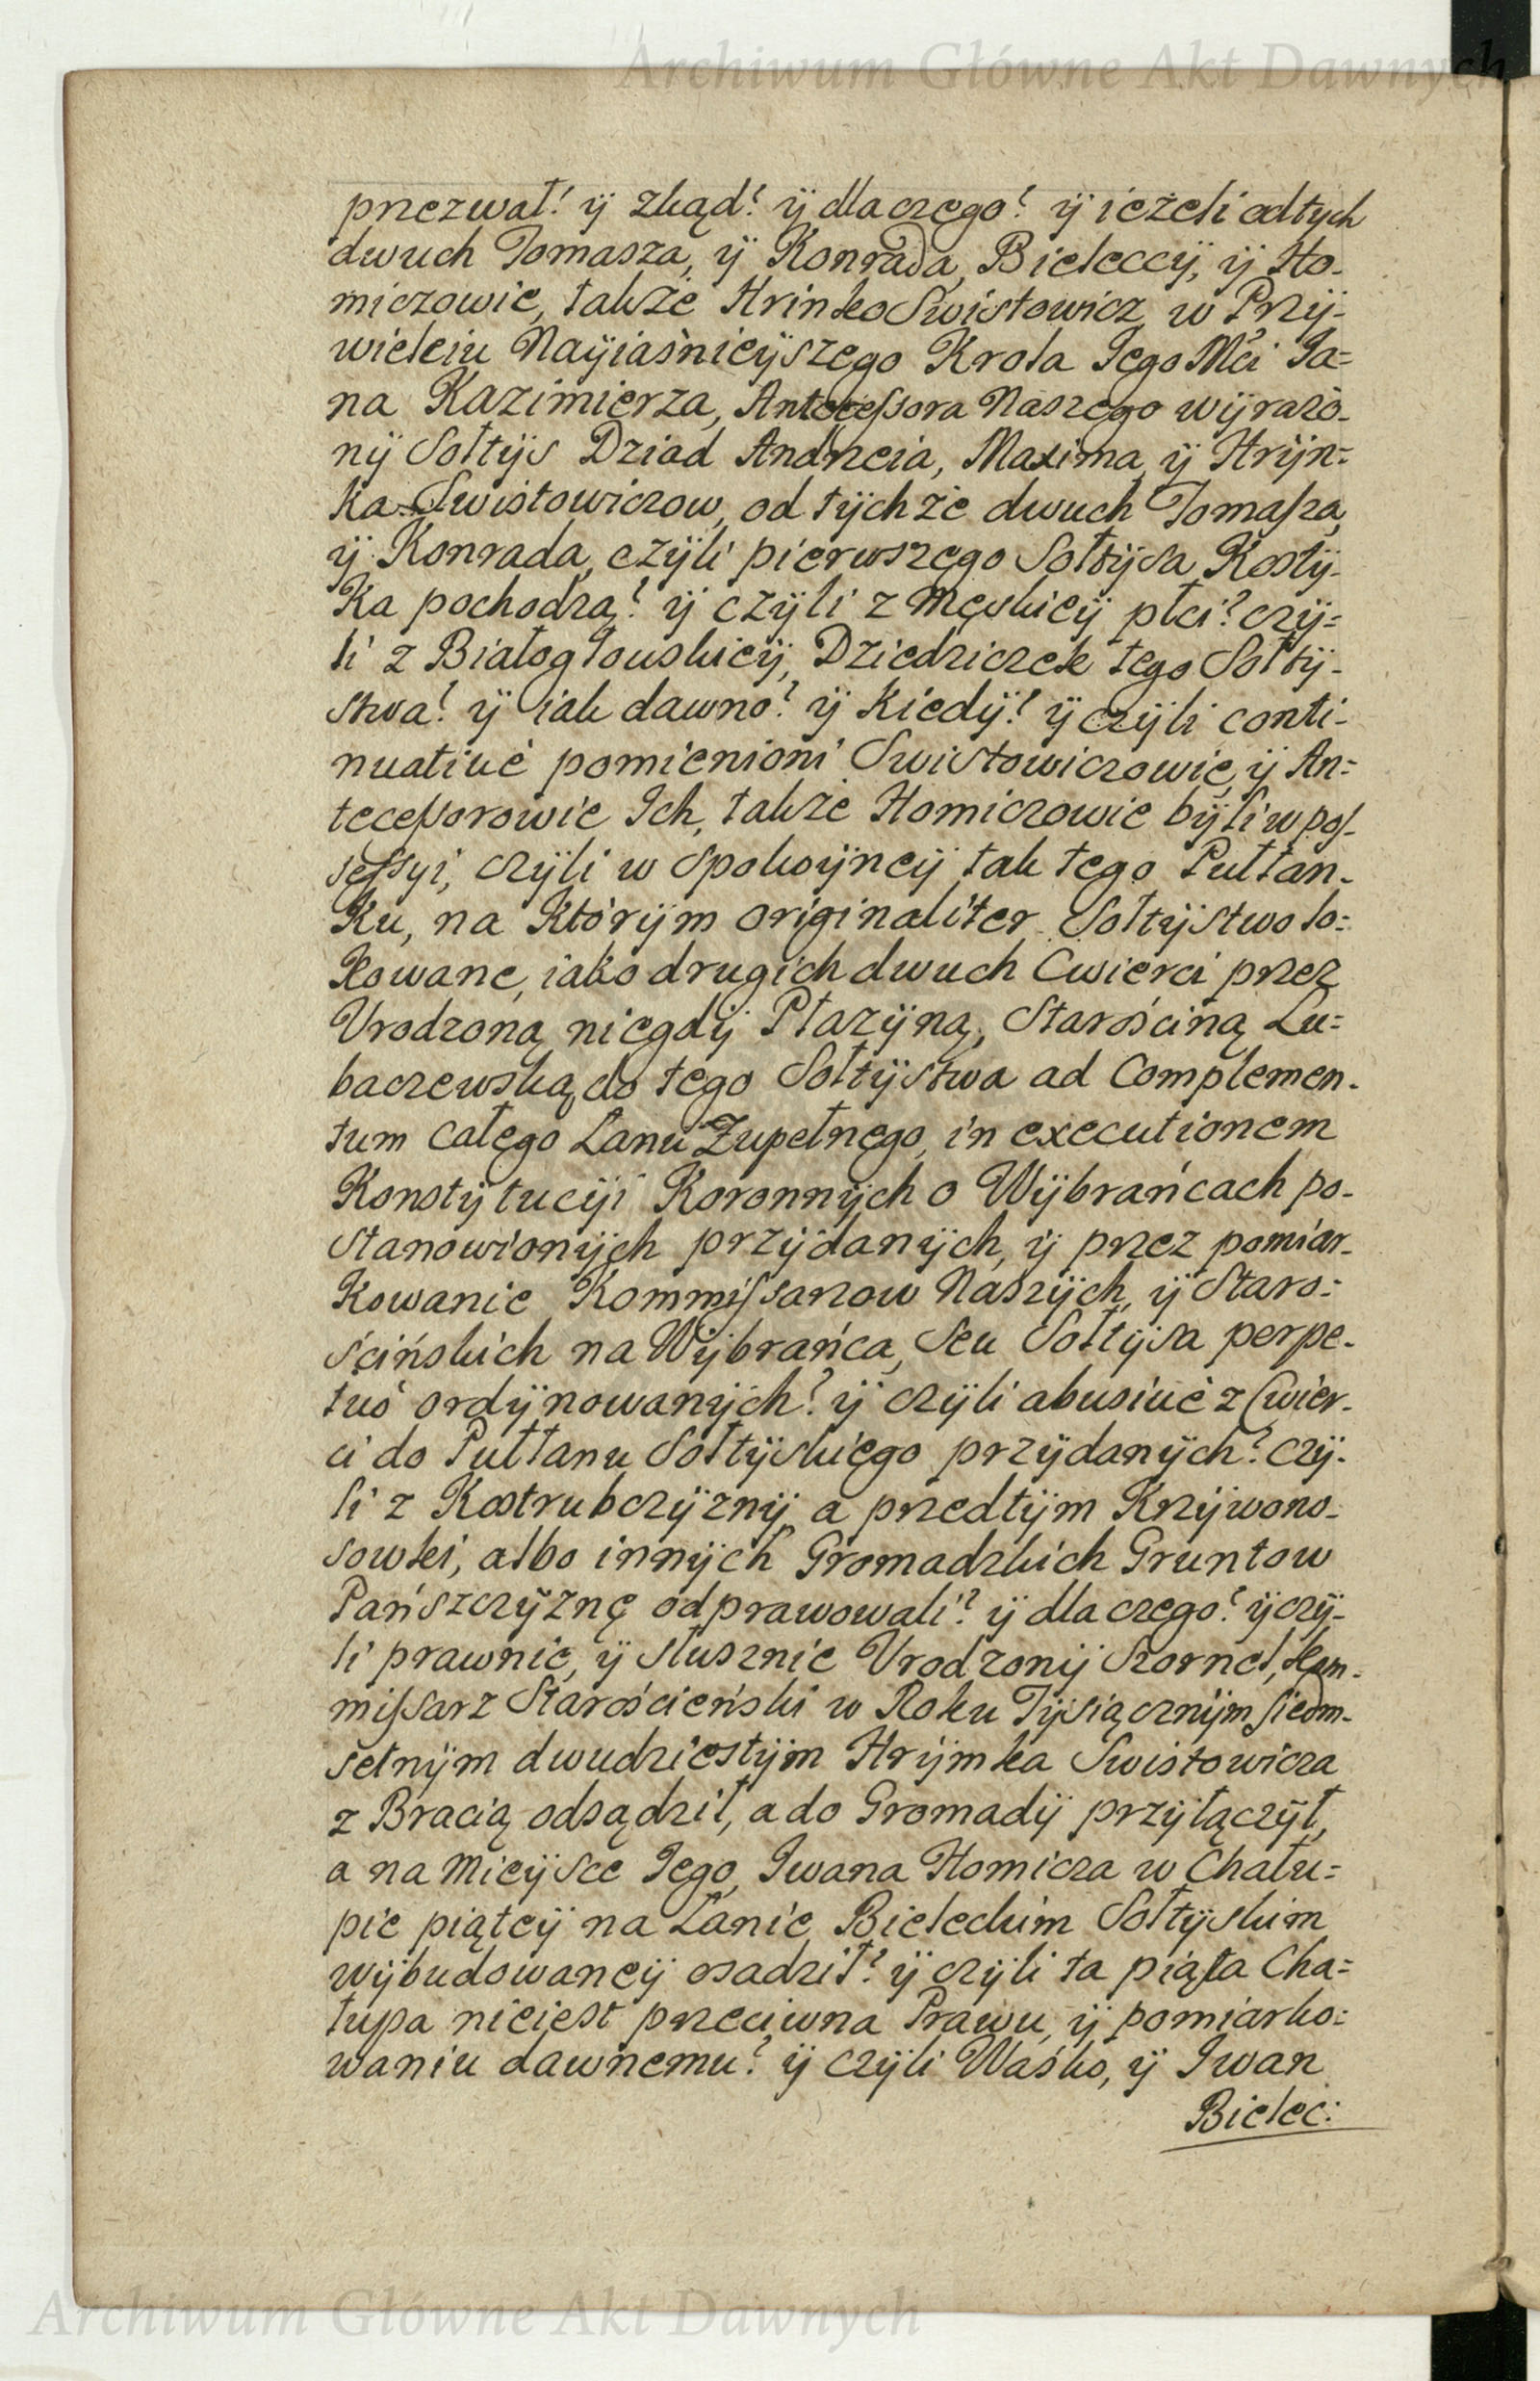 Archiwum Główne Akt Dawnych
przezwał? ÿ zkąd? ÿ dlaczego? ÿ ieżeli odtych
dwuch Tomasza, ÿ Konrada, Bieleccÿ, ÿ Ho-
miczowie, także Hrinko Swistowicz, w Przÿ-
wieleiu Naÿiaśnieÿszego Krola Jego Mći Ja=
na Kazimierza, Antecessora Naszego wÿrażo-
nÿ Sołtÿs Dziad Andrzeia, Maxima, ÿ Hrÿn=
ka Swistowiczow, od tÿchże dwuch Tomasza,
ÿ Konrada, czÿli pierwszego Sołtÿsa Kostÿ-
ka pochodzą? ÿ czÿli z Męskieÿ płci? czÿ=
li z Białogłouskieÿ, Dziedziczek tego Sołtÿ-
stwa? ÿ iak dawno? ÿ kiedÿ? ÿ czÿli conti-
nuatiuè pomienioni Swistowiczowie, ÿ An=
tecessorowie Ich, także Homiczowie bÿli w pos-
sessyi, czÿli w spokoÿneÿ tak tego Pułłan-
ku, na ktorÿm originaliter Sołtÿstwo lo=
kowane, iako drugich dwuch Cwierci przez
Vrodzoną niegdÿ Płazÿną, Starościną Lu=
baczewską do tego Sołtÿstwa ad Complemen-
tum całego Łanu Zupełnego, in executionem
Konstÿtucÿi Koronnÿch o Wÿbrańcach po-
stanowionÿch przÿdanÿch, ÿ przez pomiar-
kowanie Kommissarzow Naszÿch, ÿ Staro=
ścińskich na Wÿbrańca, seu Sołtÿsa perpe-
tuò ordÿnowanÿch? ÿ czÿli abusiuè z Cwier-
ci do Pułłanu Sołtÿskiego przÿdanÿch? czÿ-
li z Kostrubczÿznÿ, a przedtÿm Krzÿwono-
sowki, albo innÿch Gromadzkich Gruntow
Pańszczÿznę odprawowali? ÿ dla czego? ÿ czÿ-
li prawnie, ÿ słusznie Vrodzonÿ Szornel, Kom-
missarz Starościeński w Roku Tÿsiącznÿm siedm-
setnÿm dwudziestÿm Hrÿmka Swistowicza
z Bracią odsądził, a do Gromadÿ przÿłączÿł,
a na mieÿsce Jego, Iwana Homicza w Chału=
pie piąteÿ na Łanie Bieleckim Sołtÿskim
wÿbudowaneÿ osadził? ÿ czÿli ta piąta Cha=
łupa nieiest przeciwna Prawu, ÿ pomiarko=
waniu dawnemu? ÿ czÿli Waśko, ÿ Iwan
Bielec:
Archiwum Główne Akt Dawnych